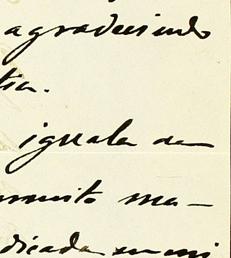 agradeciendo
tia.
iguala da
muito ma-
dicada em mi